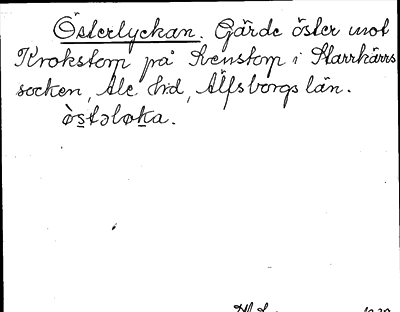 Österlyckan. Gärde öster mot
Krokstorp på Svenstorp i Starrkärrs
socken, Ale hd, Älfsborgs län.
òstəløka.